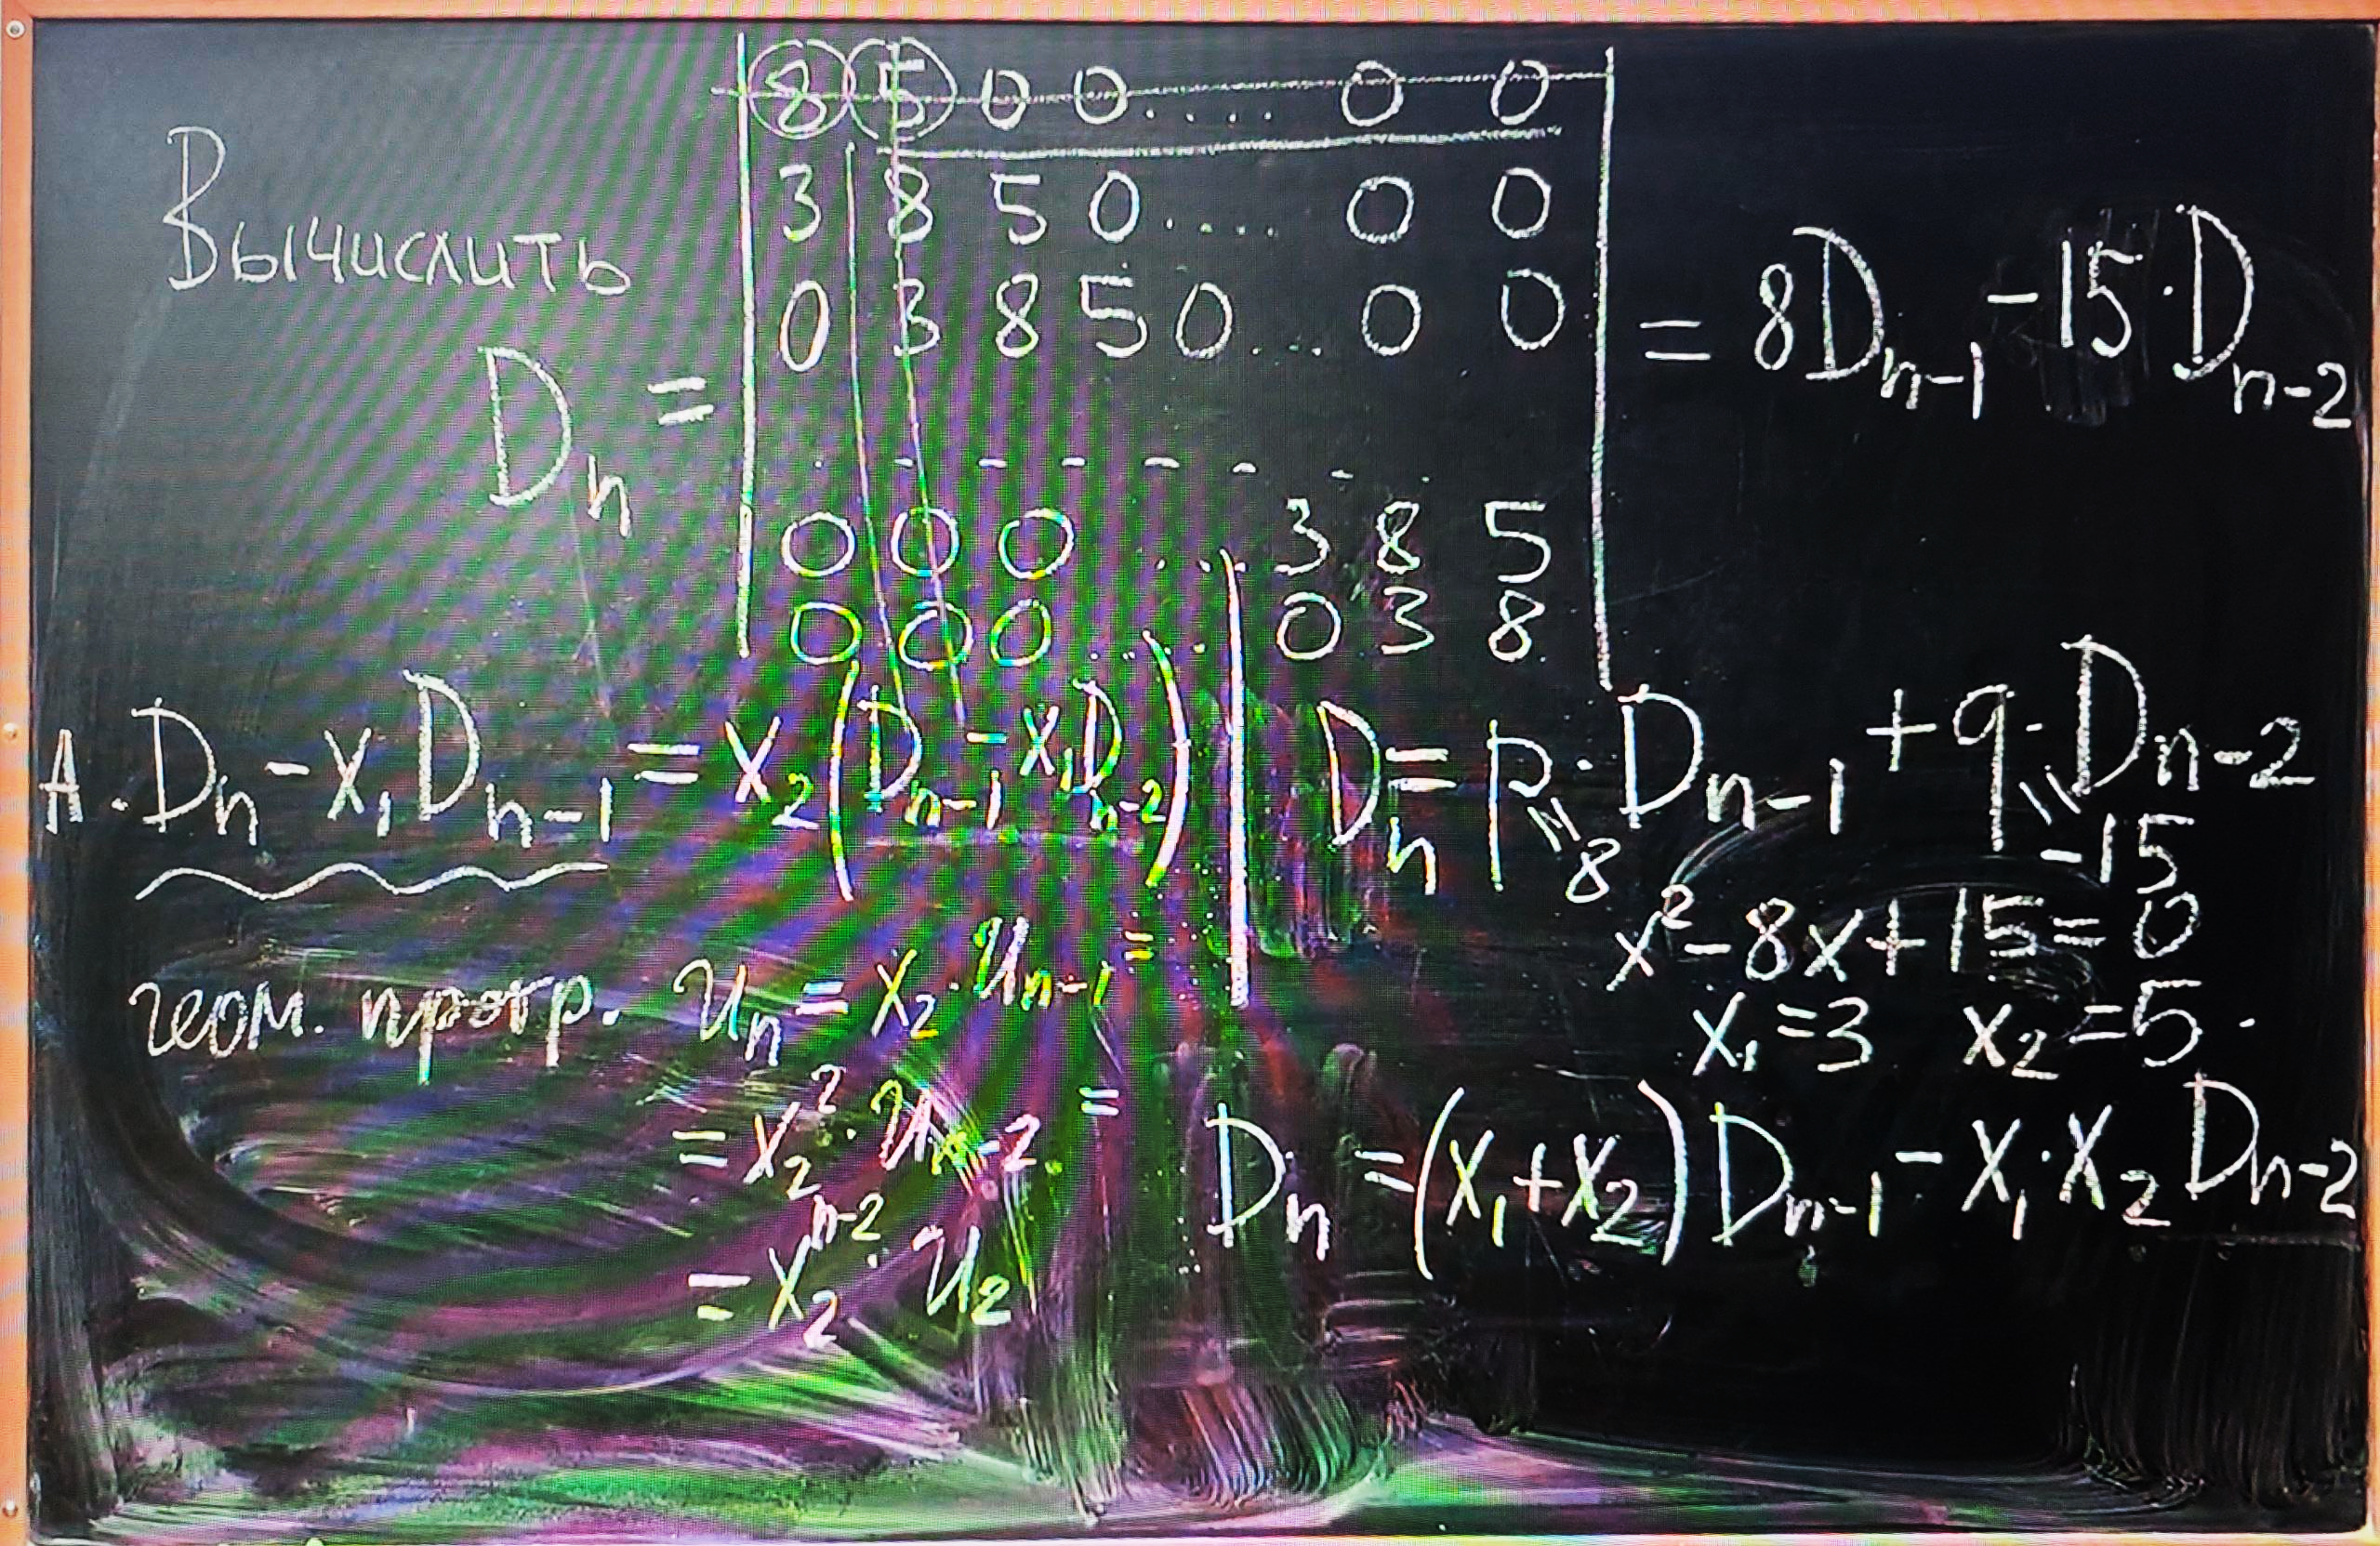 Вычислить
D_n =
8 5 0 0 .... 0 0
3 8 5 0 .... 0 0
0 3 8 5 0 ... 0 0
. - - - - - - .
0 0 0 ... 3 8 5
0 0 0 ... 0 3 8
= 8D_{n-1} - 15·D_{n-2}
A. D_n - x_1 D_{n-1} = x_2 (D_{n-1} - x_1 D_{n-2})
геом. прогр. u_n = x_2 · u_{n-1} =
= x_2^2 · u_{n-2} =
= x_2^{n-2} · u_2
D_n = p · D_{n-1} + q · D_{n-2}
= 8
= -15
x^2 - 8x + 15 = 0
x_1 = 3 x_2 = 5.
D_n = (x_1 + x_2) D_{n-1} - x_1 · x_2 D_{n-2}